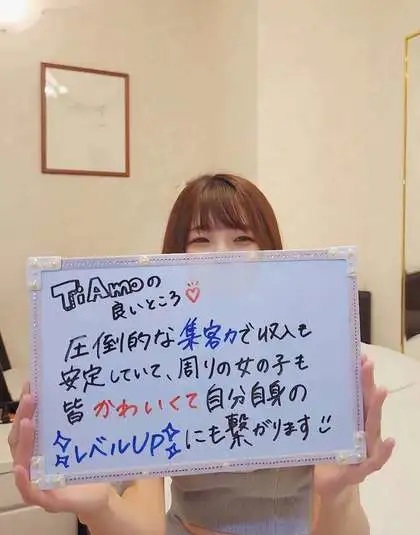 TiAmoの
良いところ♡
圧倒的な集客力で収入も
安定していて、周りの女の子も
皆かわいくて自分自身の
レベルUPにも繋がります